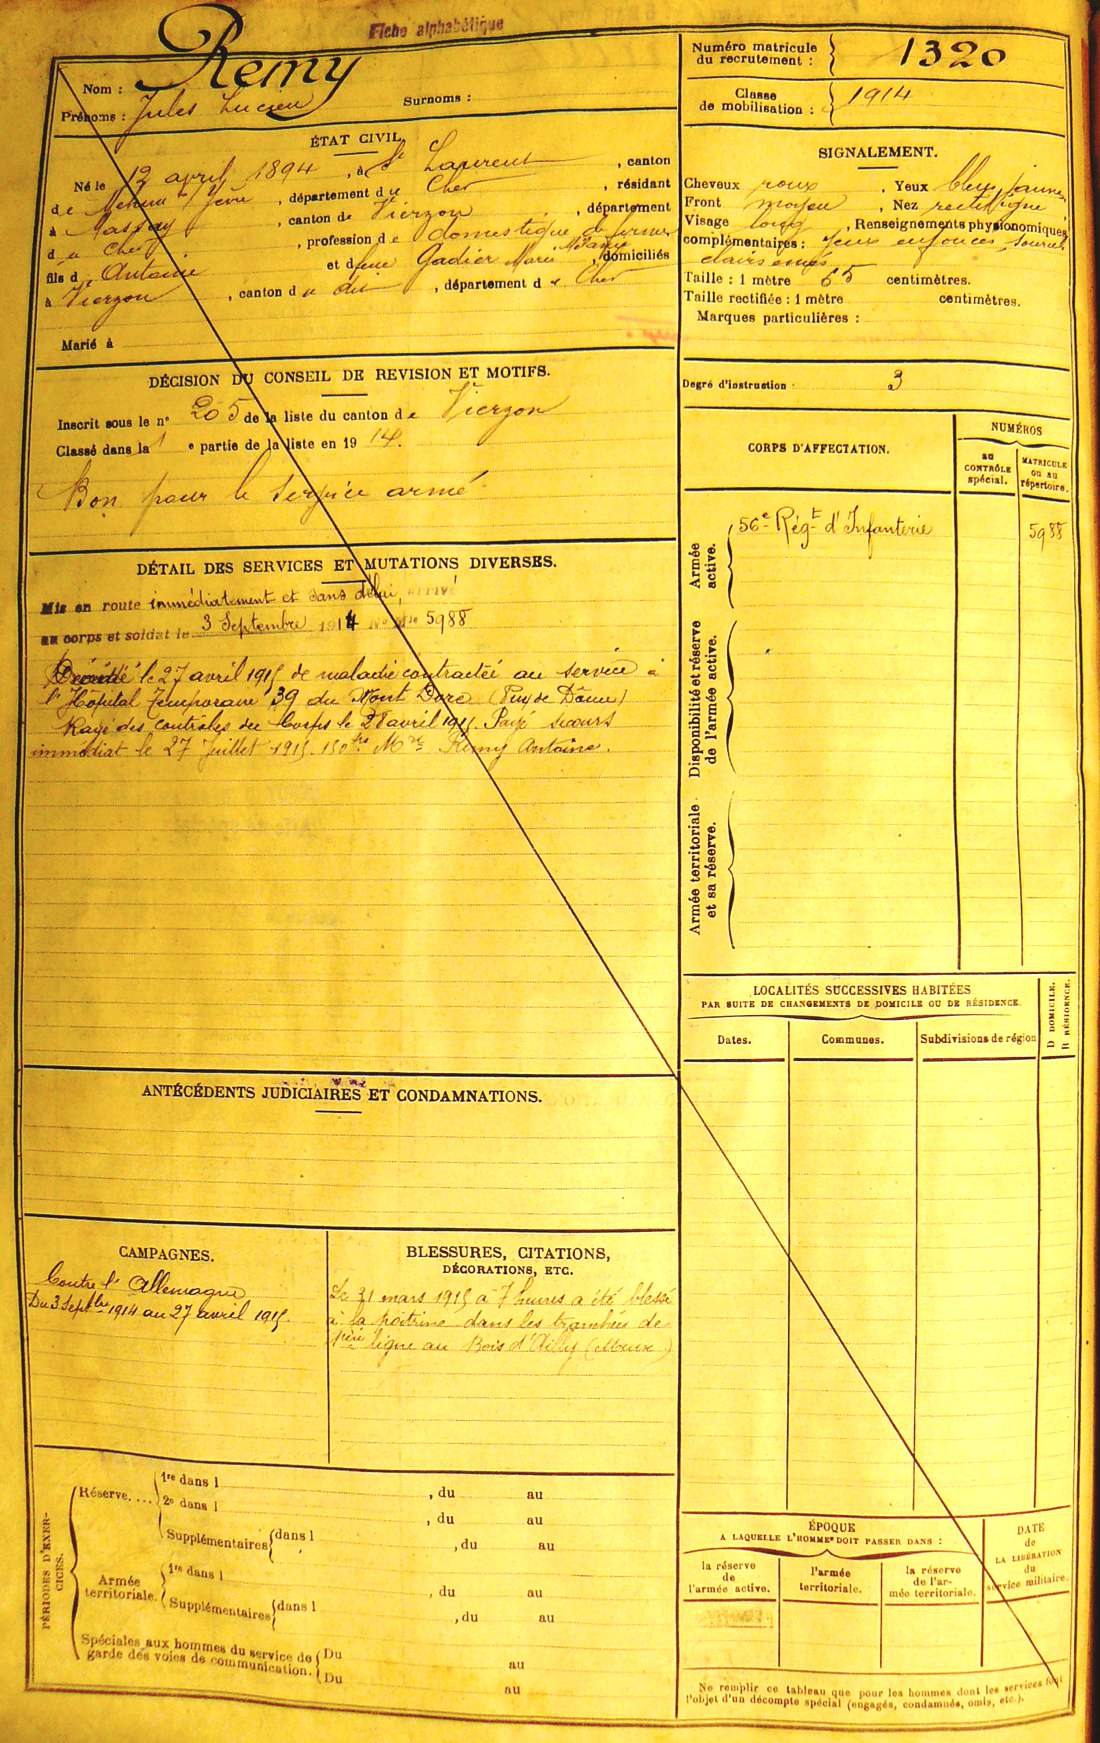 Fiche alphabétique
Nom : Remy
Prénoms : Jules Lucien Surnoms :
ÉTAT CIVIL
Né le 12 avril 1894, à St Laurent, canton
de Mehun s/ Yèvre, département du Cher, résidant
à Massay, canton de Vierzon, département
du Cher, profession de domestique de ferme
fils d Antoine et de feue Gadier Marie, domiciliés
à Vierzon, canton du dit, département du Cher
Marié à
DÉCISION DU CONSEIL DE REVISION ET MOTIFS.
Inscrit sous le n° 205 de la liste du canton de Vierzon
Classé dans la 1 e partie de la liste en 1914.
Bon pour le service armé
DÉTAIL DES SERVICES ET MUTATIONS DIVERSES.
Mis en route immédiatement et sans délai, arrivé
au corps et soldat le 3 Septembre 1914 No Mle 5988
Décédé le 27 avril 1915 de maladie contractée au service à
l'Hôpital Temporaire 39 du Mont Dore (Puy de Dôme)
Rayé des contrôles du Corps le 28 avril 1915. Payé secours
immédiat le 27 Juillet 1915. 150 frs Mr Remy Antoine.
ANTÉCÉDENTS JUDICIAIRES ET CONDAMNATIONS.
CAMPAGNES.
Contre l'Allemagne
Du 3 Septbre 1914 au 27 avril 1915.
BLESSURES, CITATIONS,
DÉCORATIONS, ETC.
Le 31 mars 1915 à 7 heures a été blessé
à la poitrine dans les tranchées de
1ère ligne au Bois d'Ailly (Meuse)
PÉRIODES D'EXERCICES.
Réserve.... 1re dans 1 , du au
2e dans 1 , du au
Supplémentaires dans 1 , du au
Armée territoriale. 1re dans 1 , du au
Supplémentaires dans 1 , du au
Spéciales aux hommes du service de Du
garde des voies de communication. au
Du
au
Numéro matricule
du recrutement : 1320
Classe
de mobilisation : 1914
SIGNALEMENT.
Cheveux roux, Yeux bleu jaune
Front moyen, Nez rectiligne
Visage long, Renseignements physionomiques
complémentaires : Yeux enfoncés, sourcils
clairs
Taille : 1 mètre 65 centimètres.
Taille rectifiée : 1 mètre centimètres.
Marques particulières :
Degré d'instruction : 3
CORPS D'AFFECTATION.
NUMÉROS
au
CONTRÔLE
spécial.
MATRICULE
ou au
répertoire.
Armée
active.
56e Régt d'Infanterie 5988
Disponibilité et réserve
de l'armée active.
Armée territoriale
et sa réserve.
LOCALITÉS SUCCESSIVES HABITÉES
PAR SUITE DE CHANGEMENTS DE DOMICILE OU DE RÉSIDENCE.
Dates. Communes. Subdivisions de région
D DOMICILE.
R RÉSIDENCE.
ÉPOQUE
A LAQUELLE L'HOMME DOIT PASSER DANS :
la réserve
de
l'armée active.
l'armée
territoriale.
la réserve
de l'ar-
mée territoriale.
DATE
de
LA LIBÉRATION
du
service militaire.
Ne remplir ce tableau que pour les hommes dont les services font
l'objet d'un décompte spécial (engagés, condamnés, omis, etc.).